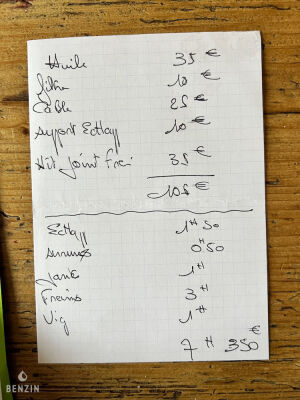 Huile 35 €
filtre 10 €
Cable 25 €
support Echapp 10 €
Kit joint frein 35 €
105 €
Echapp 1H50
0H50
Jante 1H
Freins 3H
Vig 1H
7H 350€
BENZIN